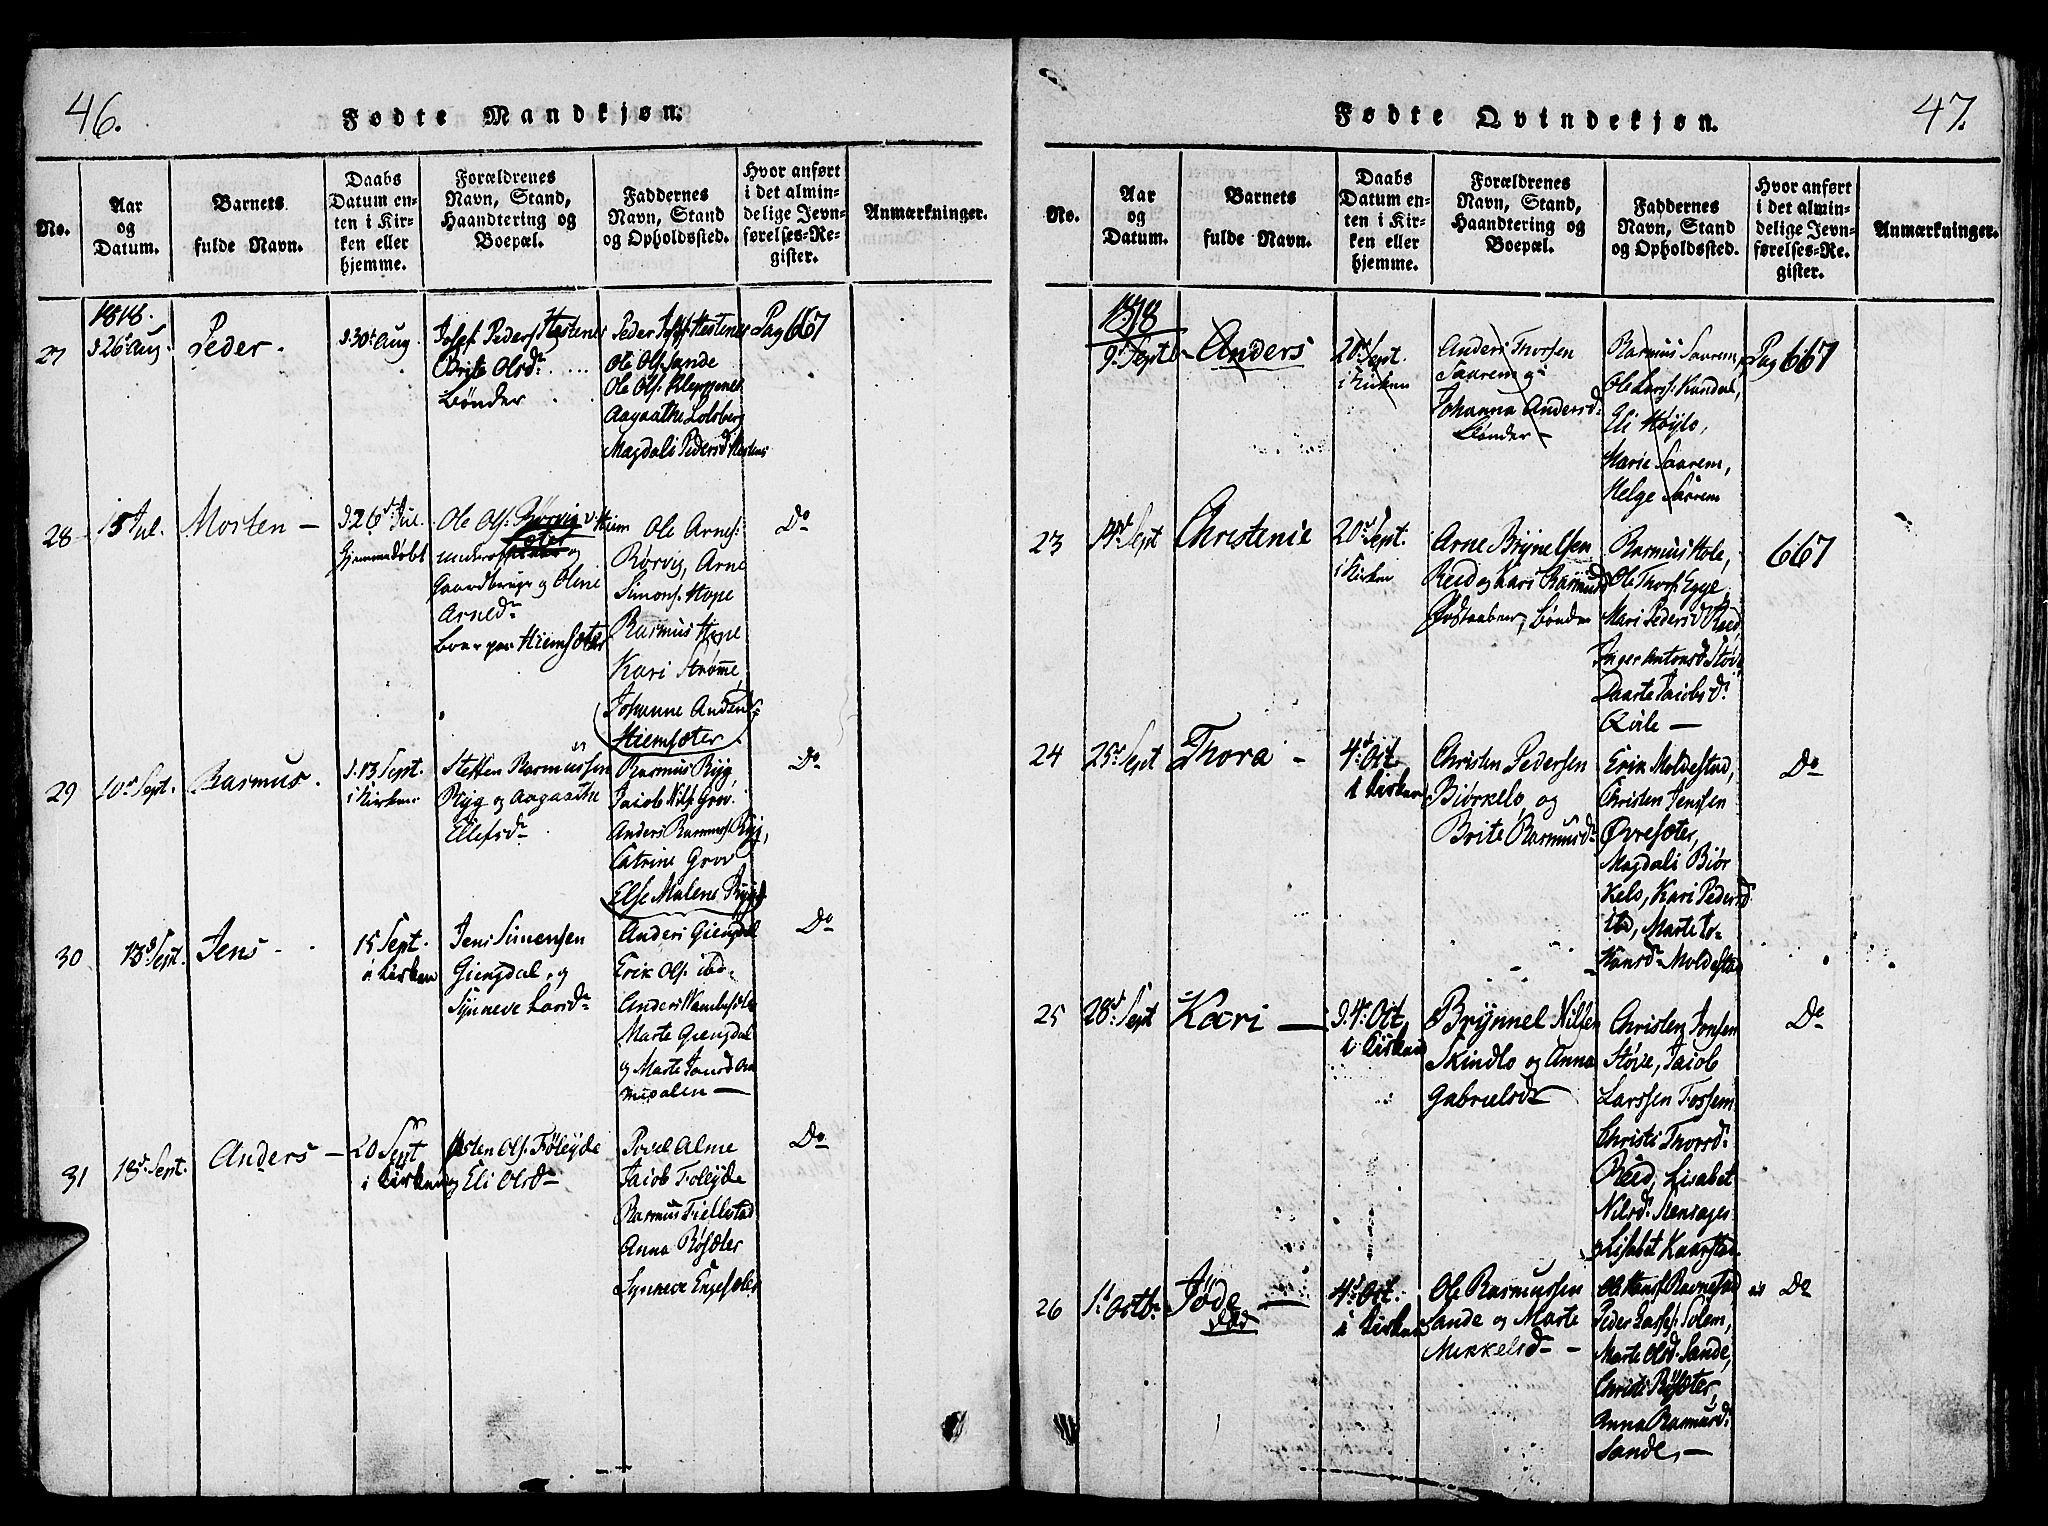 46.
Fødte Mandkjøn.
No.
Aar
og
Datum.
Barnets
fulde Navn.
Daabs
Datum en-
ten i Kir-
ken eller
hjemme.
Forældrenes
Navn, Stand,
Haandtering og
Boepæl.
Faddernes
Navn, Stand
og Opholdssted.
Hvor anført
i det almin-
delige Jevn-
førelses-Re-
gister.
Anmærkninger.
1818.
27
d 26 Aug.
Peder
d 30 Aug.
Josef Peders Hestenes
Brite Olsdr
Bønder
Peder Josefs Hestenes
Ole Ols. Sande
Ole Ols.
Aagaathe Lotsberg
Magdali Pedersd Hestenes
Pag 667
28
15 Jul.
Morten
d 26 Jul.
hjemmedøbt
Ole Ols. Rørvig
og
Gaardbruger og Oline
Arnedr
boer paa Hiemsæter
Ole Arnes.
Rørvig, Arne
Simons. Hope
Rasmus Hope
Kari Strømme
Johanne Anders
Hiemsæter
Do
29
10 Sept.
Rasmus
d. 13 Sept.
i Kirken
Steffen Rasmussen
Rygg og Aagaathe
Ellefsdr
Rasmus Rygg,
Jacob Nils Grov.
Anders Rasmuss. Rygg,
Catrine Grov
Else Malene Rygg
Do
30
13 Sept.
Jens
15 Sept.
i Kirken
Jens Simensen
Giengdal, og
Synneve Larsdr
Anders Giengdal
Erik Ols. ibd.
Anders
Marte Giengdal
og Marte Jonsd
Do
31
18 Sept.
Anders
20 Sept
i Kirken
Østen Ols. Føleyde
og Eli Olsdr
Povel Alme
Jacob Foleyde
Rasmus Fiellestad
Anna Røsæter
Synneve Engesæter
Do
47.
Fødte Qvindekjøn.
No.
Aar
og
Datum.
Barnets
fulde Navn.
Daabs
Datum en-
ten i Kir-
ken eller
hjemme.
Forældrenes
Navn, Stand,
Haandtering og
Boepæl.
Faddernes
Navn, Stand
og Opholdssted.
Hvor anført
i det almin-
delige Jevn-
førelses-Re-
gister.
Anmærkninger.
1818
9 Sept
Anders
20 Sept.
i Kirken
Anders Thorsen
Saarem og
Johanna Andersdr
Bønder
Rasmus Saarem,
Ole Larss. Kandal,
Eli Høylo,
Marie Saarem,
Helge Saarem
Pag 667
23
14 Sept
Christenie
20 Sept.
i Kirken
Arne Brynelsen
Reed og Kari Rasmusd
Bønder
Rasmus Hole,
Ole Thors. Egge
Mari Pedersd Reed,
Inger Antonsd Støve
Daarte Jacobsdr
Qvile
667
24
25 Sept
Thora
4 Oct
i Kirken
Christen Pedersen
Biørkelo, og
Brite Rasmusdr
Erik Moldestad,
Christen Jenssen
Øvresæter,
Magdali Biør
kelo, Kari Pedersd
ibd, Marte
Moldestad
Do
25
28 Sept
Kari
d. 4 Oct
i Kirken
Brynnel Nilsen
Skindlo og Anna
Gabrielsdr
Christen Jonsen
Støve, Jacob
Larssen Fossem
Christi Thorsdr
Reed, Lisabet
Nilsd.
Lisabet Kaarstad
Do
26
1 Octbr
Jøde
død
4 Oct.
i Kirken
Ole Rasmussen
Sande og Marte
Mikkelsdr
Ole Hans. Ravnestad
Peder Larss. Solem,
Marte Olsd. Sande,
Christi Røsæter,
Anna Rasmusd.
Sande,
Do